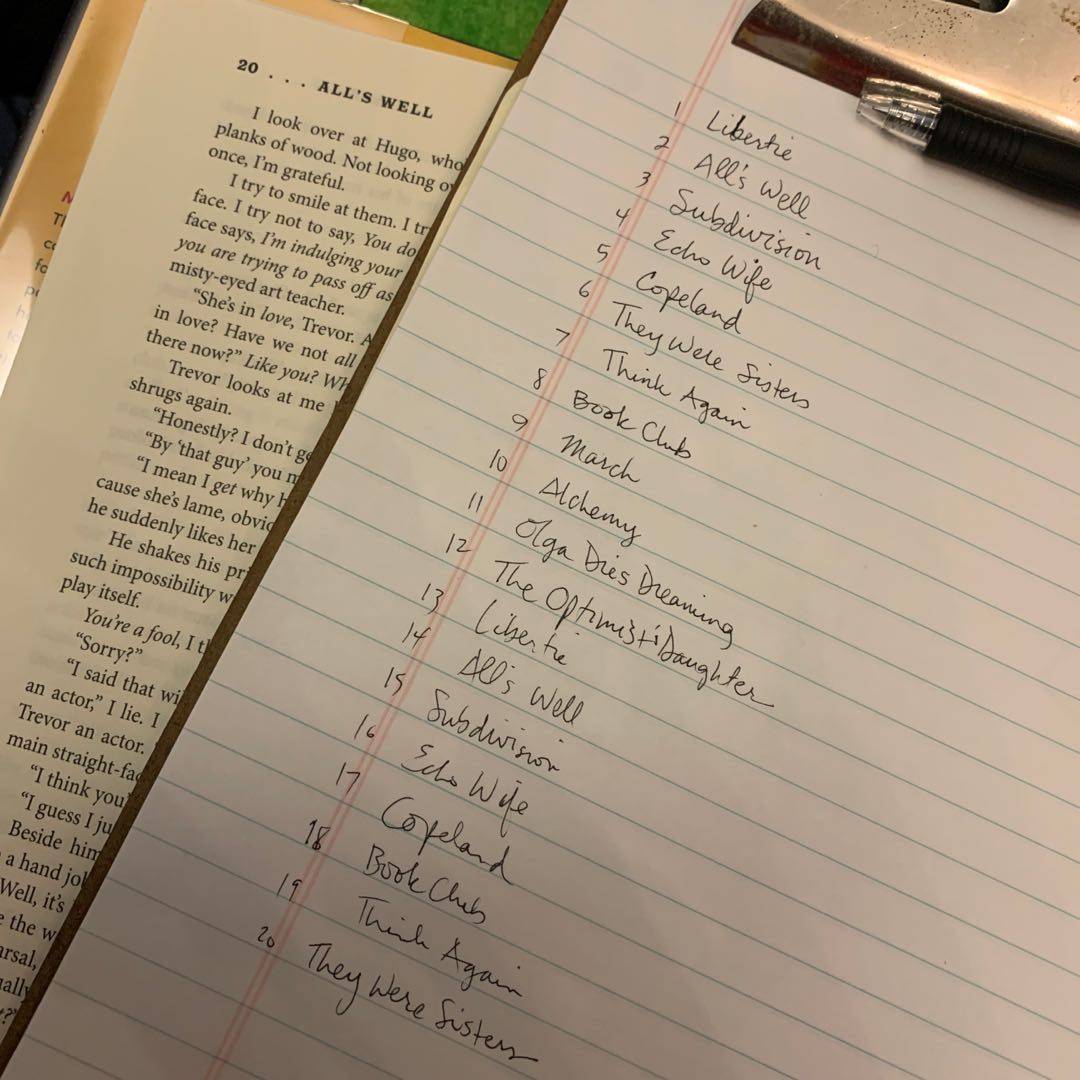 20 . . . ALL'S WELL
I look over at Hugo, who
planks of wood. Not looking ov
once, I'm grateful.
I try to smile at them. I tr
face. I try not to say, You do
face says, I'm indulging your
you are trying to pass off as
misty-eyed art teacher.
"She's in love, Trevor. A
in love? Have we not all
there now?" Like you? Wh
Trevor looks at me
shrugs again.
"Honestly? I don't ge
"By 'that guy' you m
"I mean I get why h
cause she's lame, obvio
he suddenly likes her
He shakes his pr
such impossibility w
play itself.
You're a fool, I t
"Sorry?"
"I said that wi
an actor," I lie. I
Trevor an actor.
main straight-fac
"I think you'
"I guess I ju
Beside him
a hand jo
Well, it's
e the w
arsal,
ually
t?"
1 Libertie
2 All's Well
3 Subdivision
4 Echo Wife
5 Copeland
6 They Were Sisters
7 Think Again
8 Book Club
9 March
10 Alchemy
11 Olga Dies Dreaming
12 The Optimist's Daughter
13 Libertie
14 All's Well
15 Subdivision
16 Echo Wife
17 Copeland
18 Book Club
19 Think Again
20 They Were Sisters